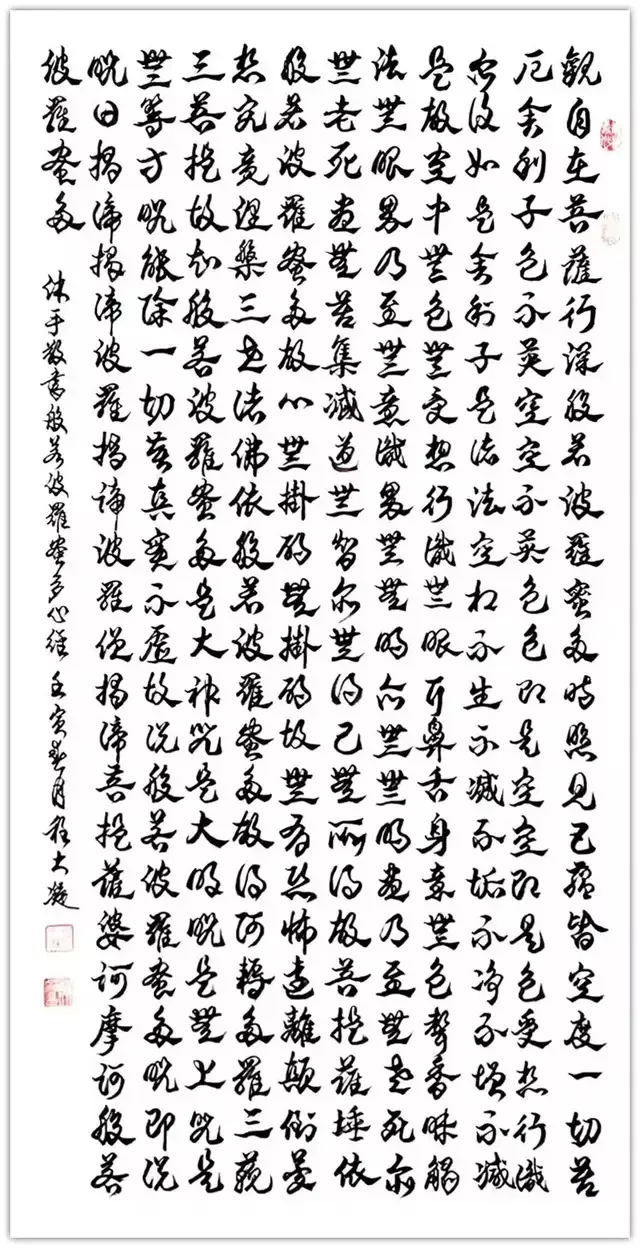 觀自在菩薩行深般若波羅蜜多時照見五蘊皆空度一切苦
厄舍利子色不異空空不異色色即是空空即是色受想行識
亦復如是舍利子是諸法空相不生不滅不垢不淨不增不減
是故空中無色無受想行識無眼耳鼻舌身意無色聲香味觸
法無眼界乃至無意識界無無明亦無無明盡乃至無老死亦
無老死盡無苦集滅道無智亦無得以無所得故菩提薩埵依
般若波羅蜜多故心無掛礙無掛礙故無有恐怖遠離顛倒夢
想究竟涅槃三世諸佛依般若波羅蜜多故得阿耨多羅三藐
三菩提故知般若波羅蜜多是大神咒是大明呪是無上咒是
無等等呪能除一切苦真實不虛故說般若波羅蜜多呪即說
呪曰揭諦揭諦波羅揭諦波羅僧揭諦菩提薩婆訶摩訶般若
波羅蜜多
沐手敬書般若波羅蜜多心經 壬寅春月